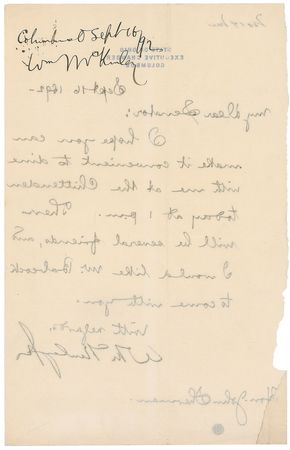 Columbus O Sept 16, 92
Wm McKinley
STATE OF OHIO
EXECUTIVE CHAMBER
COLUMBUS
Sept. 16 1892.
My Dear Senator:
I hope you can
make it convenient to dine
with me at the Chittenden
today at 1 p.m. There
will be several friends, and
I would like Mr. Babcock
to come with you.
With regards,
Wm McKinley
Hon. John Sherman.